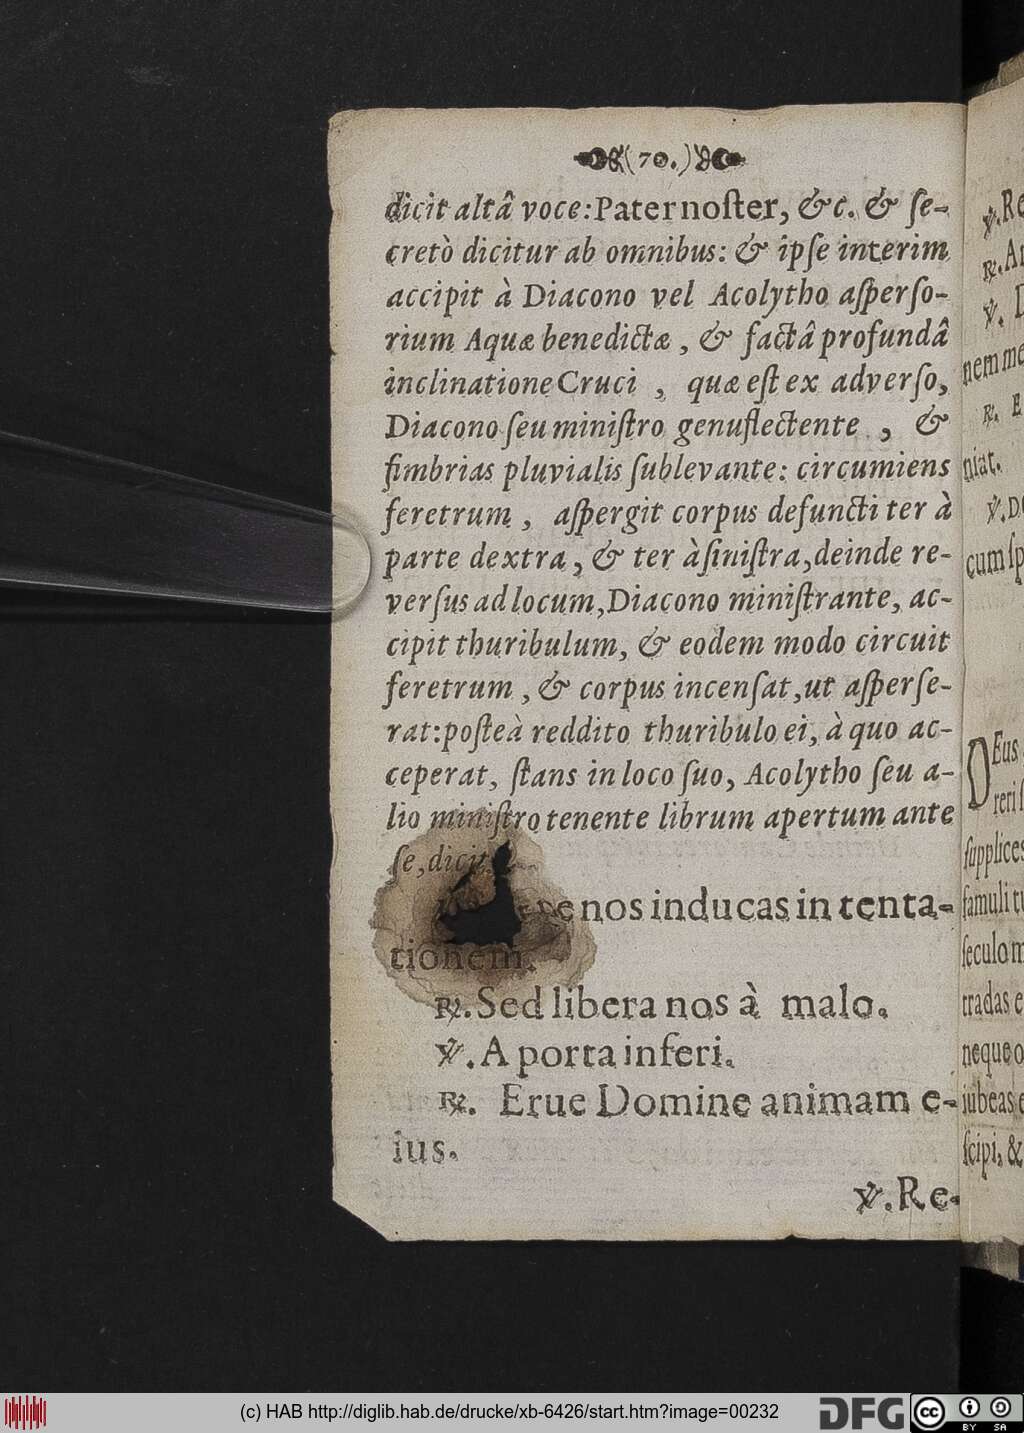 (70.)
dicit altâ voce: Pater noſter, &c. & ſe-
cretò dicitur ab omnibus: & ipſe interim
accipit à Diacono vel Acolytho aſperſo-
rium Aquæ benedictæ, & factâ profundâ
inclinatione Cruci, quæ eſt ex adverſo,
Diacono ſeu miniſtro genuflectente, &
fimbrias pluvialis ſublevante: circumiens
feretrum, aſpergit corpus defuncti ter à
parte dextra, & ter à ſiniſtra, deinde re-
verſus ad locum, Diacono miniſtrante, ac-
cipit thuribulum, & eodem modo circuit
feretrum, & corpus incenſat, ut aſperſe-
rat: poſteà reddito thuribulo ei, à quo ac-
ceperat, ſtans in loco ſuo, Acolytho ſeu a-
lio miniſtro tenente librum apertum ante
ſe, dicit
nos inducas in tenta-
tionem.
℟. Sed libera nos à malo.
℣. A porta inferi.
℟. Erue Domine animam e-
ius.
℣. Re-
℣. Re
℟.
℣.
nem me
℟. E
niat.
℣. D
cum ſp
Eus
reri
ſupplices
famuli tu
ſeculo m
tradas e
neque o
iubeas e
ſcipi, &
(c) HAB http://diglib.hab.de/drucke/xb-6426/start.htm?image=00232
DFG
cc
BY SA